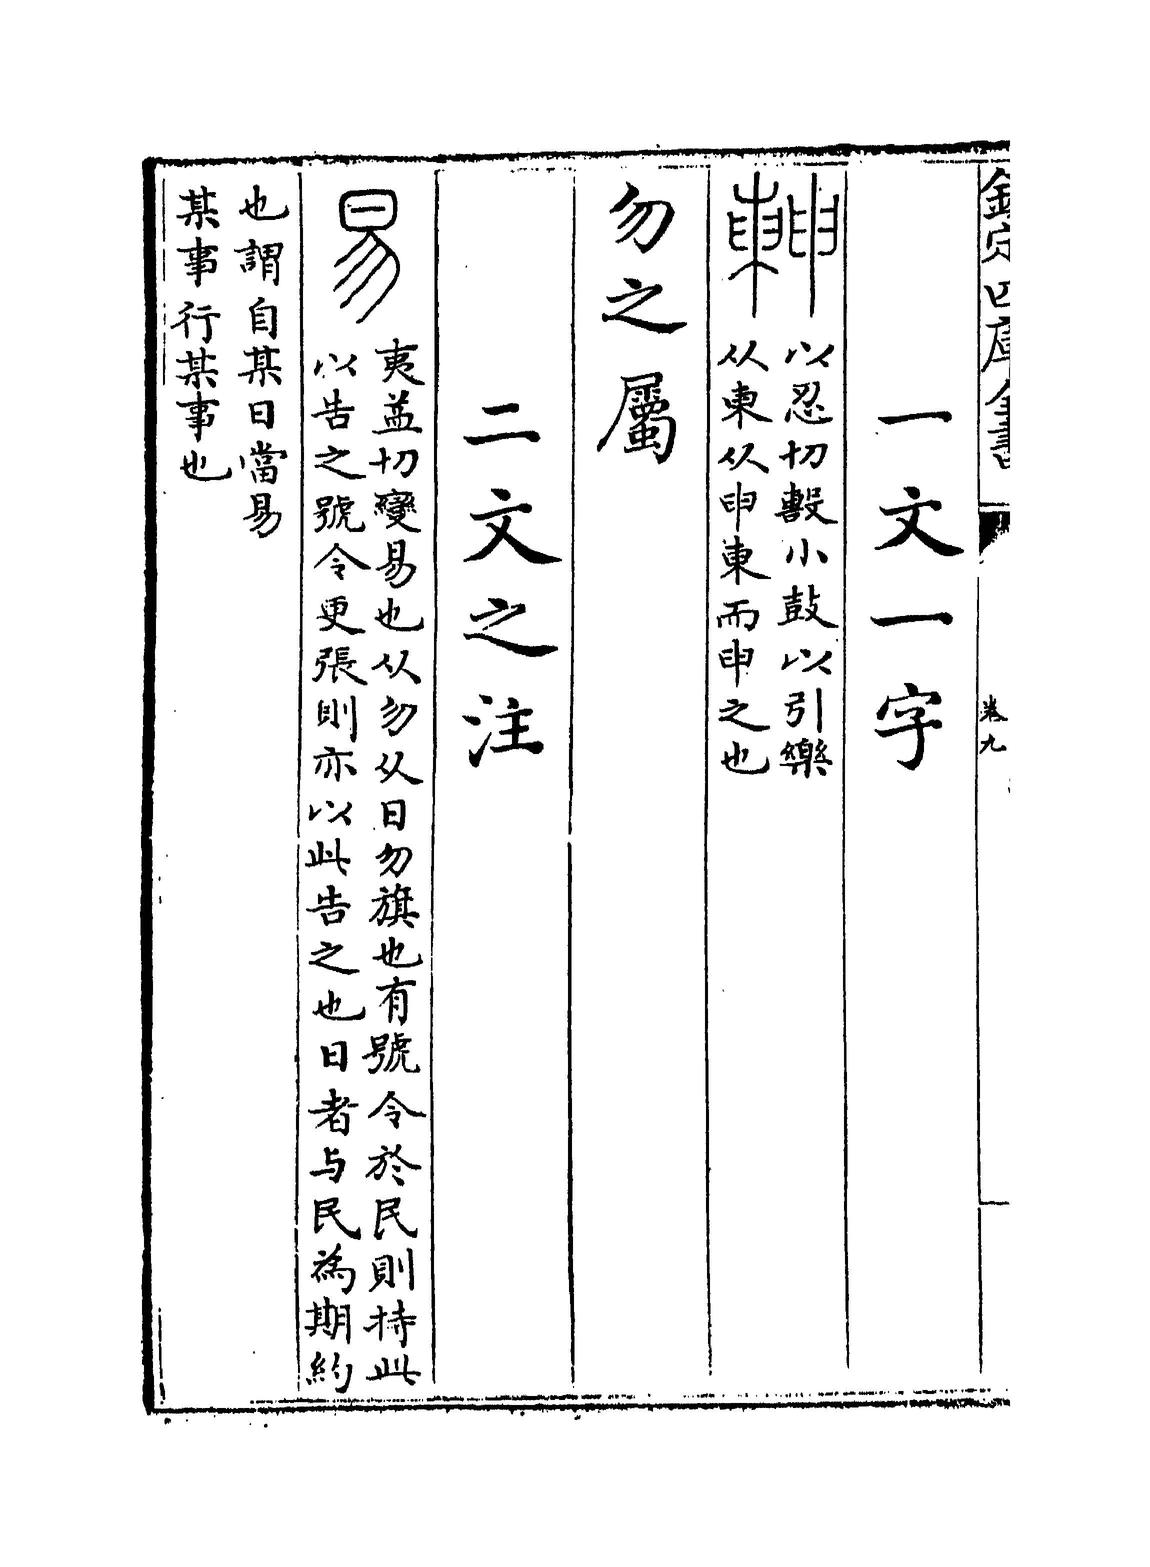 欽定四庫全書
卷九
一文一字
以忍切毄小鼓以引樂
从東从申東而申之也
勿之屬
二文之注
易
夷益切變易也从勿从日勿旗也有號令於民則持此
以告之號令更張則亦以此告之也日者与民為期約
也謂自某日當易
某事行某事也